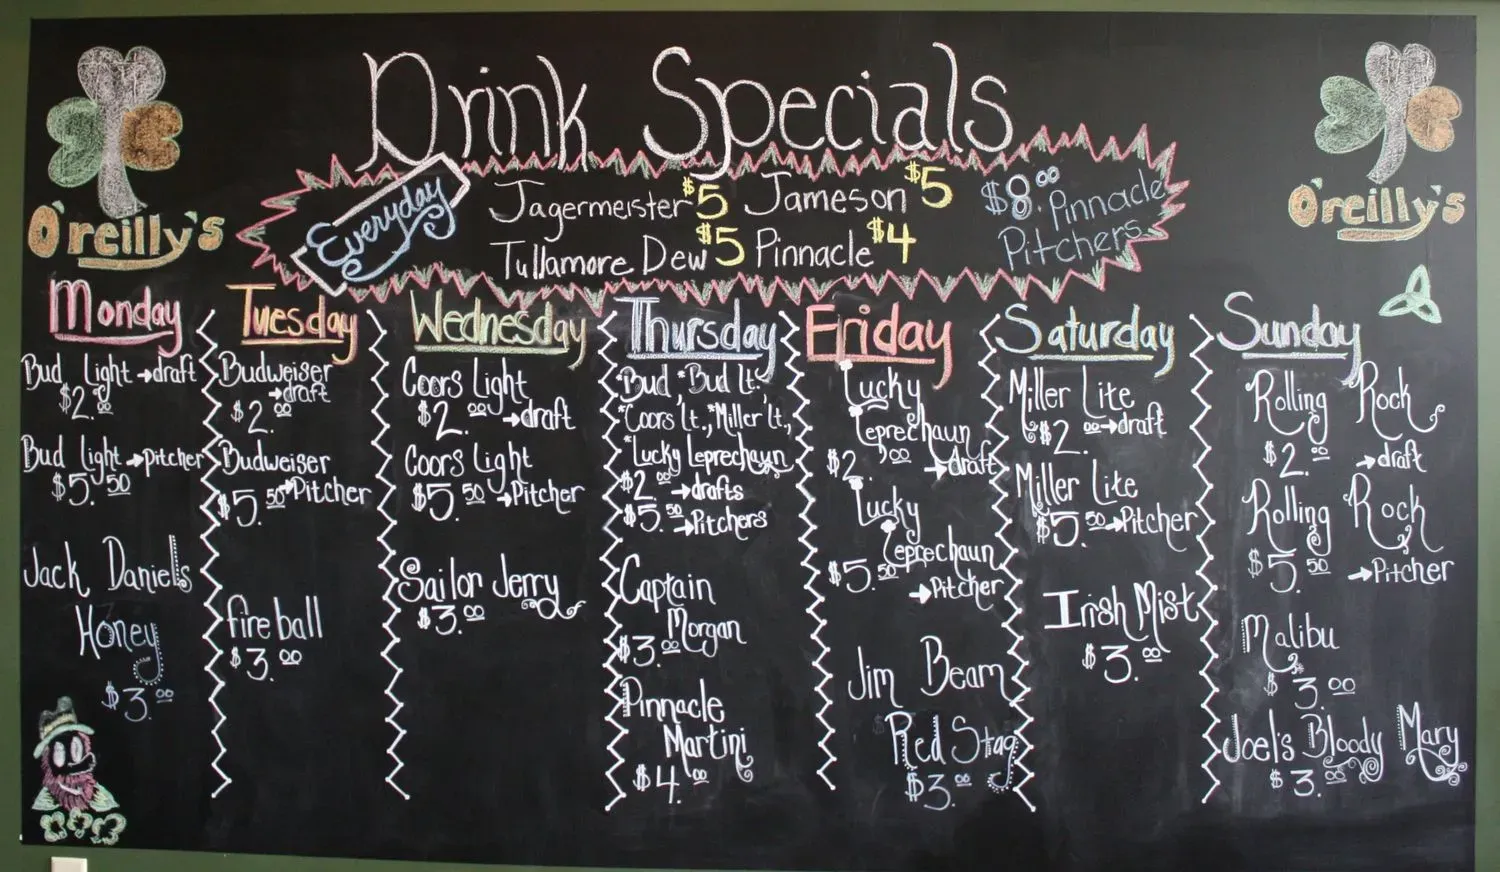 Drink Specials
O'reilly's
O'reilly's
Everyday
Jagermeister $5 Jameson $5
Tullamore Dew $5 Pinnacle $4
$8.00 Pinnacle
Pitchers
Monday
Bud Light → draft
$2.00
Bud Light → pitcher
$5.50
Jack Daniels
Honey
$3.00
Tuesday
Budweiser
→ draft
$2.00
Budweiser
$5.50 → Pitcher
fireball
$3.00
Wednesday
Coors Light
$2.00 → draft
Coors Light
$5.50 → Pitcher
Sailor Jerry
$3.00
Thursday
*Bud, *Bud Lt.,
*Coors Lt., *Miller Lt.,
*Lucky Leprechaun
$2.00 → drafts
$5.50 → Pitchers
Captain
Morgan
$3.00
Pinnacle
Martini
$4.00
Friday
Lucky
Leprechaun
$2.00 → draft
Lucky
Leprechaun
$5.50
→ Pitcher
Jim Beam
Red Stag
$3.00
Saturday
Miller Lite
$2.00 → draft
Miller Lite
$5.50 → Pitcher
Irish Mist
$3.00
Sunday
Rolling Rock
$2.00 → draft
Rolling Rock
$5.50 → Pitcher
Malibu
$3.00
Joel's Bloody Mary
$3.00